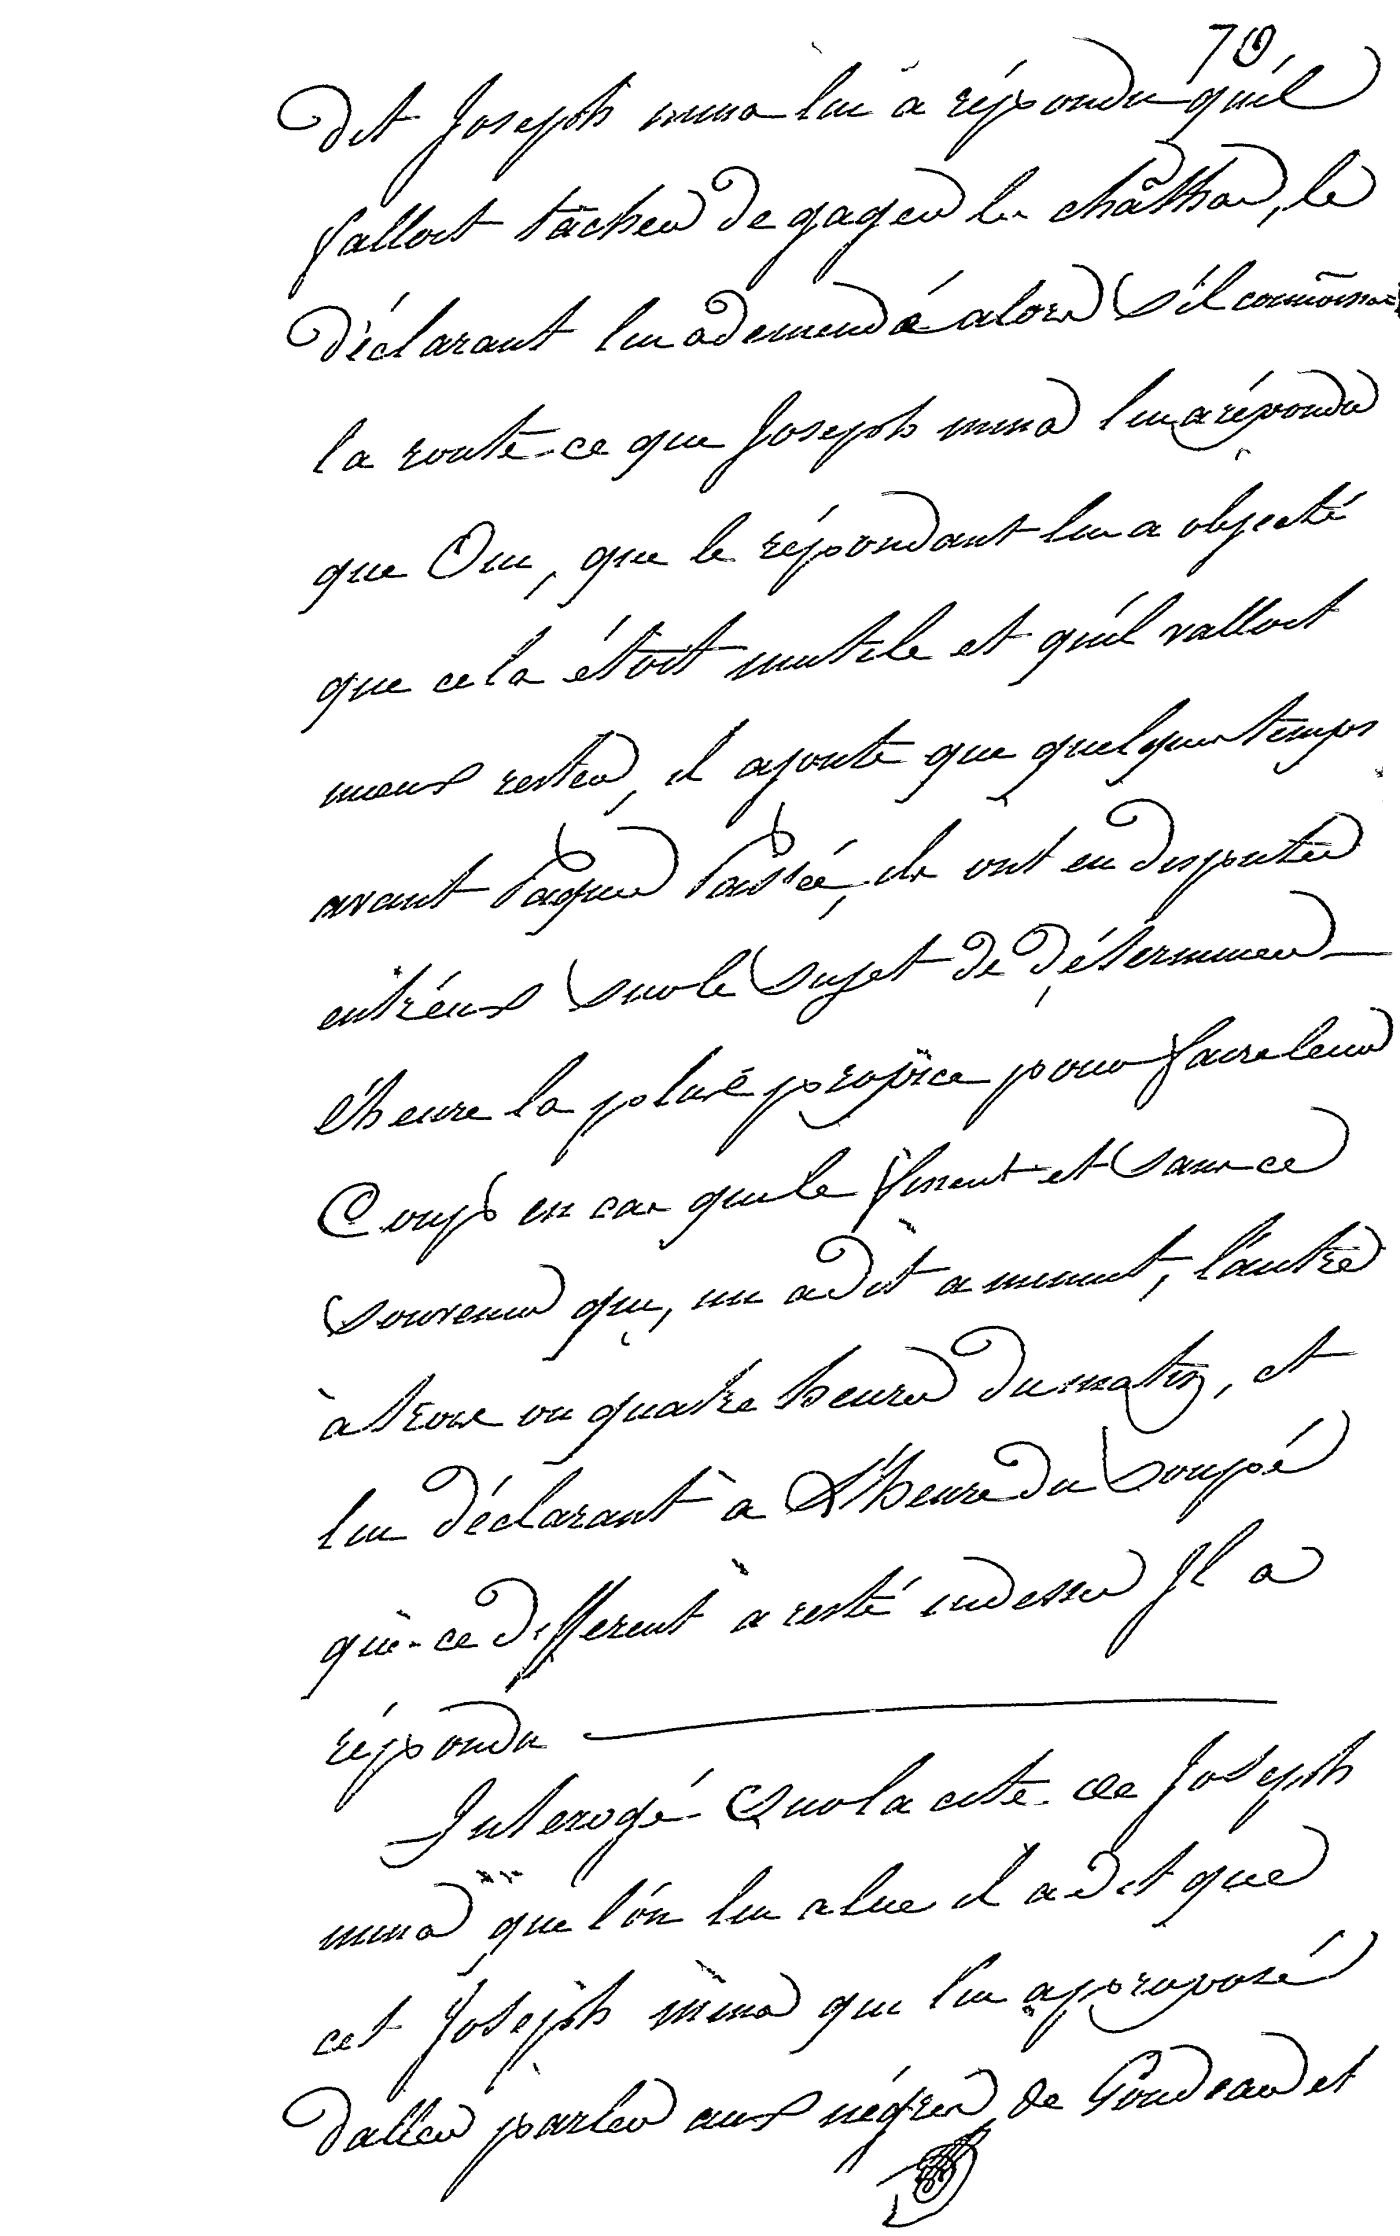 70
dit Joseph mina lui a répondu qu'il
falloit tacher de gagner les châthas, le
déclarant lui a demendé alors s'il connoissoit
la route ce que Joseph mina lui a répondu
que Oui, que le répondant lui a objecté
que cela étoit inutile et qu'il valloit
mieux rester, il ajoute que quelques temps
avant Paques Passée, ils ont eu disputes
entr'eux sur le sujet de déterminer
l'heure la plus propice pour faire leur
Coups en cas que le fissent et sans ce
souvenir qui, un a dit a minuit, l'autre
à trois ou quatre heures du matin, et
lui déclarant à L'heure du soupé
qui ce different a resté indessu Il a
répondu
Interogé sur la cite de Joseph
mina que l'ón lui a lue il a dit que
cet Joseph mina qui lui a proposé
daller parler aux négres de Goudeau et